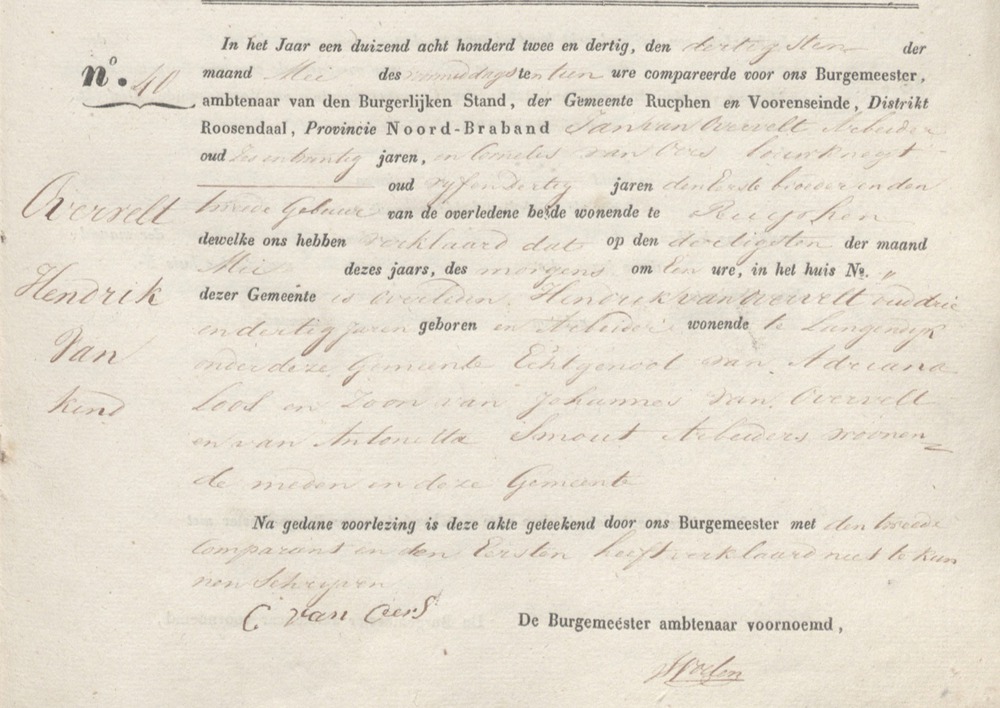 In het Jaar een duizend acht honderd twee en dertig, den dertigsten der
nº. 40
maand Mei des voormiddags ten tien ure compareerde voor ons Burgemeester,
ambtenaar van den Burgerlijken Stand, der Gemeente Rucphen en Voorenseinde, Distrikt
Roosendaal, Provincie Noord-Braband Jan van Overvelt Arbeider
oud Zes en twintig jaren, en Cornelis van Oers bouwknegt
oud vyf en dertig jaren den Eerste broeder en den
Overvelt
tweede Gebuur van de overledene beide wonende te Rucphen
dewelke ons hebben verklaard dat op den dertigsten der maand
Mei dezes jaars, des morgens om Een ure, in het huis No. "
Hendrik
dezer Gemeente is overleden Hendrik van Overvelt oud drie
en dertig jaren geboren en Arbeider wonende te Langendyk
van
onder deze Gemeente Echtgenoot van Adriana
kind
Loos en Zoon van Johannes van Overvelt
en van Antonetta Smout Arbeiders woonen=
de meden in deze Gemeente
Na gedane voorlezing is deze akte geteekend door ons Burgemeester met den tweede
Comparant en den Eersten heeft verklaard niet te kun
nen Schryven
C van Oers
De Burgemeester ambtenaar voornoemd,